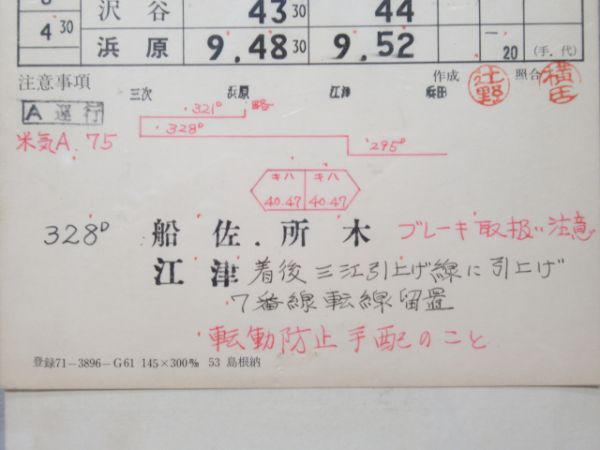 沢谷 43 30 44
4 30 浜原 9.48 30 9.52 20 (手.代)
注意事項 作成 辻野 照合 横田
三次 浜原 江津 浜田
A運行
米気A.75
321D
328D
295D
キハ キハ
40.47 40.47
328D 船佐.所木 ブレーキ取扱い注意
江津 着後三江引上げ線に引上げ
7番線転線留置
転動防止手配のこと
登録71-3896-G61 145×300㎜ 53 島根納